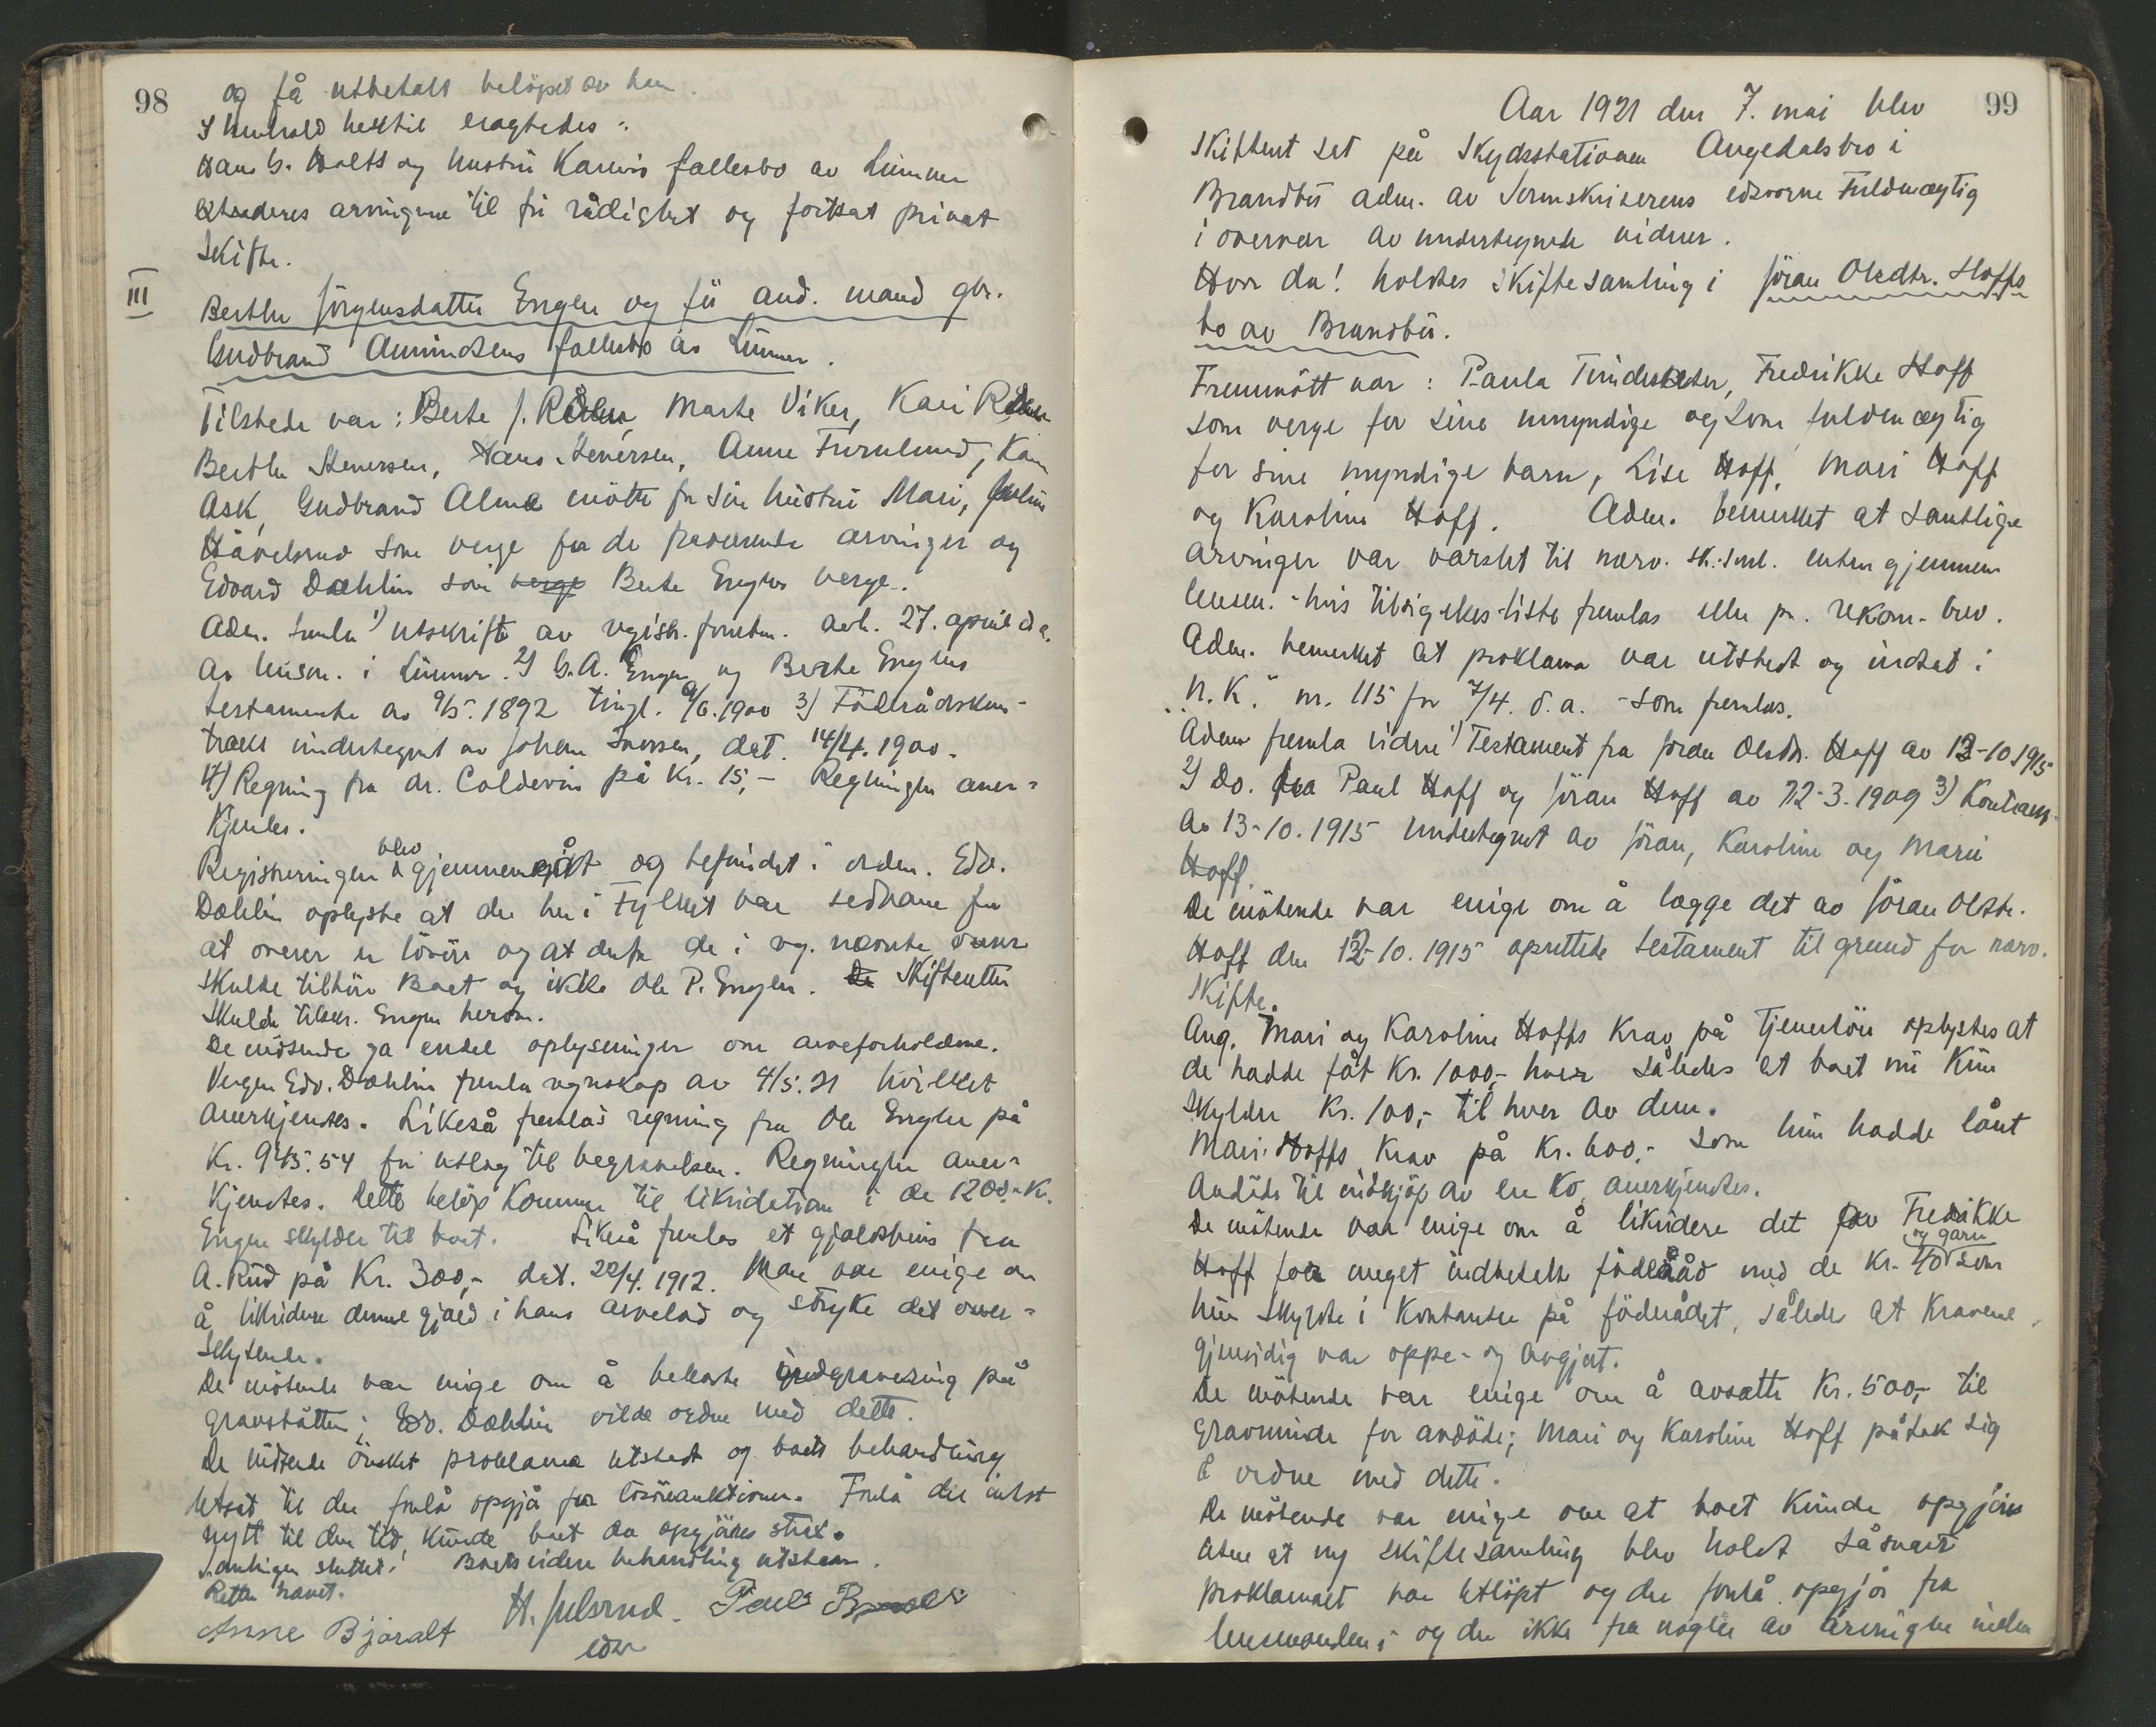 98
og få utbetalt beløpet av ham.
I henhold hertil eragtedes:
Hans G. Holts og hustru Karens fællesbo av Lunner
extraderes arvingerne til fri rådighet og fortsat privat
skifte.
III
Berthe Jørgensdatter Engen og før avd. mand gbr.
Gudbrand Amundsens fællesbo av Lunner.
Tilstede var: Berte J. Råken, Marte Viker, Kari
Berthe Stenersen, Hans Stenersen, Anne Furulund, Kari
Ask, Gudbrand Alm møtte for sin hustru Mari,
Håvelsrud som verge for de fraværende arvinger og
Edvard Dæhlin som verge Berte Engens verge.
Adm. fremla 1) utskrift av registr. forretn. avh. 27. april d.a.
av lensm. i Lunner. 2) G.A. Engen og Berte Engens
testamente av 9/5. 1892 tingl. 9/6. 1900 3) Føderådskon-
trakt undertegnet av Johan Iversen, dat. 14/4. 1900.
4) Regning fra dr. Coldevin på kr. 15,- Regningen aner-
kjendes.
Registreringen blev gjennemgåt og befundet i orden. Edv.
Dæhlin oplyste at der her i fylket var sedvane for
at ovner er løsøre og at derfor de i reg. nævnte ovner
skulde tilhøre boet og ikke Ole P. Engen. De Skifteretten
skulde tilskr. Engen herom.
De møtende ga endel oplysninger om arveforholdene.
Vergen Edv. Dæhlin fremla regnskap av 4/5. 21 hvilket
anerkjendtes. Likeså fremlas regning fra Ole Engen på
kr. 945.54 for utlæg til begravelsen. Regningen aner-
kjendtes. Dette beløp kommer til likvidation i de 1200,- kr.
Engen skylder til boet. Likeså fremlas et gjældsbevis fra
A. Rud på kr. 300,- dat. 22/4. 1912. Man var enige om
å likvidere denne gjæld i hans arvelod og stryke det over-
skytende.
De møtende var enige om å bekoste indgravering på
gravstøtten; Edv. Dæhlin vilde ordne med dette.
De møtende ønsket proklama utstedt og boets behandling
utsat til der forelå opgjør for løsøreauktionen. Forelå der intet
nytt til den tid, kunde boet da opgjøres strax.
Samlingen sluttet. Boets videre behandling utstaar.
Retten hævet.
Anne Bjøralt H. Julsrud.
edsv
99
Aar 1921 den 7. mai blev
skifteret sat på skydsstationen Augedalsbro i
Brandbu adm. av sorenskriverens edsvorne fuldmægtig
i overvær av undertegnede vidner.
Hvor da! holdtes skiftesamling i Jøran Olsdtr. Hoffs
bo av Brandbu.
Fremmøtt var: Paula Tindeseter, Fredrikke Hoff
som verge for sine umyndige og som fuldmægtig
for sine myndige barn, Lise Hoff, Mari Hoff
og Karoline Hoff. Adm. bemerket at samtlige
arvinger var varslet til nærv. sk.saml. enten gjennem
lensm. - hvis tilsigelses-liste fremlas eller pr. rekom. brev.
Adm. bemerket at proklama var utstedt og indsat i
"N.K." nr. 115 for 7/4. d.a. - som fremlas.
Adm fremla videre 1) Testament fra Jøran Olsdtr. Hoff av 12-10 1915
2) Do. fra Paul Hoff og Jøran Hoff av 12-3. 1909 3) Kontrakt
av 13-10. 1915 undertegnet av Jøran, Karoline og Marie
Hoff.
De møtende var enige om å lægge det av Jøran Olsdtr.
Hoff den 12-10. 1915 oprettede testament til grund for nærv.
skifte.
Ang. Mari og Karoline Hoffs krav på tjenerløn oplystes at
de hadde fåt kr. 1000,- hver således at boet nu kun
skylder kr. 100,- til hver av dem.
Mari Hoffs krav på kr. 600,- som hun hadde lånt
avdøde til indkjøp av en ko, anerkjendtes.
De møtende var enige om å likvidere det av Fredrikke
Hoff for meget indbetalt føderåd med de kr. 40 og garn som
hun skyldte i kontanter på føderådet, således at kravene
gjensidig var oppe- og avgjort.
De møtende var enige om å avsætte kr. 500,- til
gravminde for avdøde; Mari og Karoline Hoff påtok sig
å ordne med dette.
De møtende var enige om at boet kunde opgjøres
uten at ny skiftesamling blev holdt såsnart
proklamaet var utløpt og der forelå opgjør fra
lensmanden; og der ikke fra nogen av arvingene inden